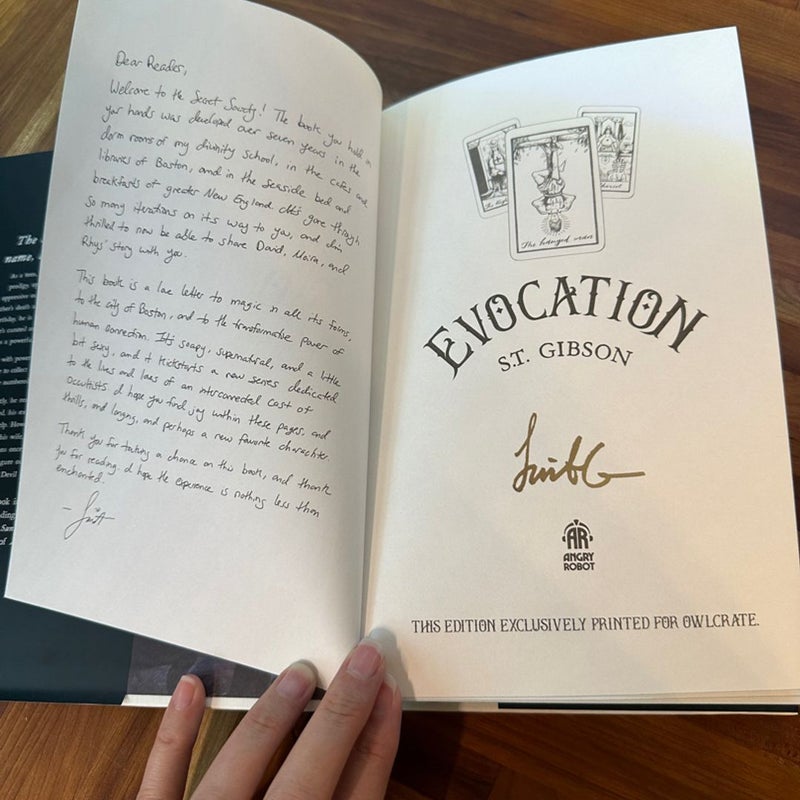 Dear Reader,
Welcome to the Secret Society! The book you hold in
your hands was developed over seven years in the
dorm rooms of my divinity school, in the cafes and
libraries of Boston, and in the seaside bed and
breakfasts of greater New England. It's gone through
so many iterations on its way to you, and I'm
thrilled to now be able to share David, Moira, and
Rhys' story with you.
This book is a love letter to magic in all its forms,
to the city of Boston, and to the transformative power of
human connection. It's soapy, supernatural, and a little
bit sexy, and it kickstarts a new series dedicated
to the lives and loves of an interconnected cast of
occultists. I hope you find joy within these pages, and
thrills, and longing, and perhaps a new favorite character.
Thank you for taking a chance on this book, and thank
you for reading. I hope the experience is nothing less than
enchanted.
The
name,
The hanged man
EVOCATION
S.T. GIBSON
AR
ANGRY
ROBOT
THIS EDITION EXCLUSIVELY PRINTED FOR OWLCRATE.